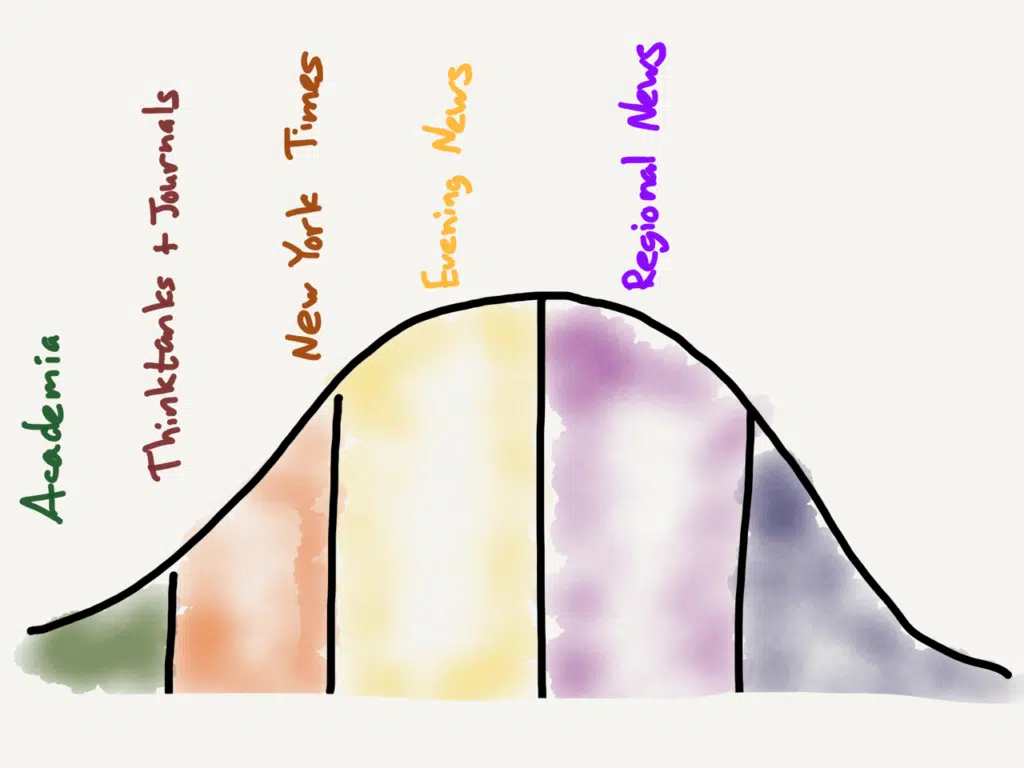 Academia
Thinktanks + Journals
New York Times
Evening News
Regional News